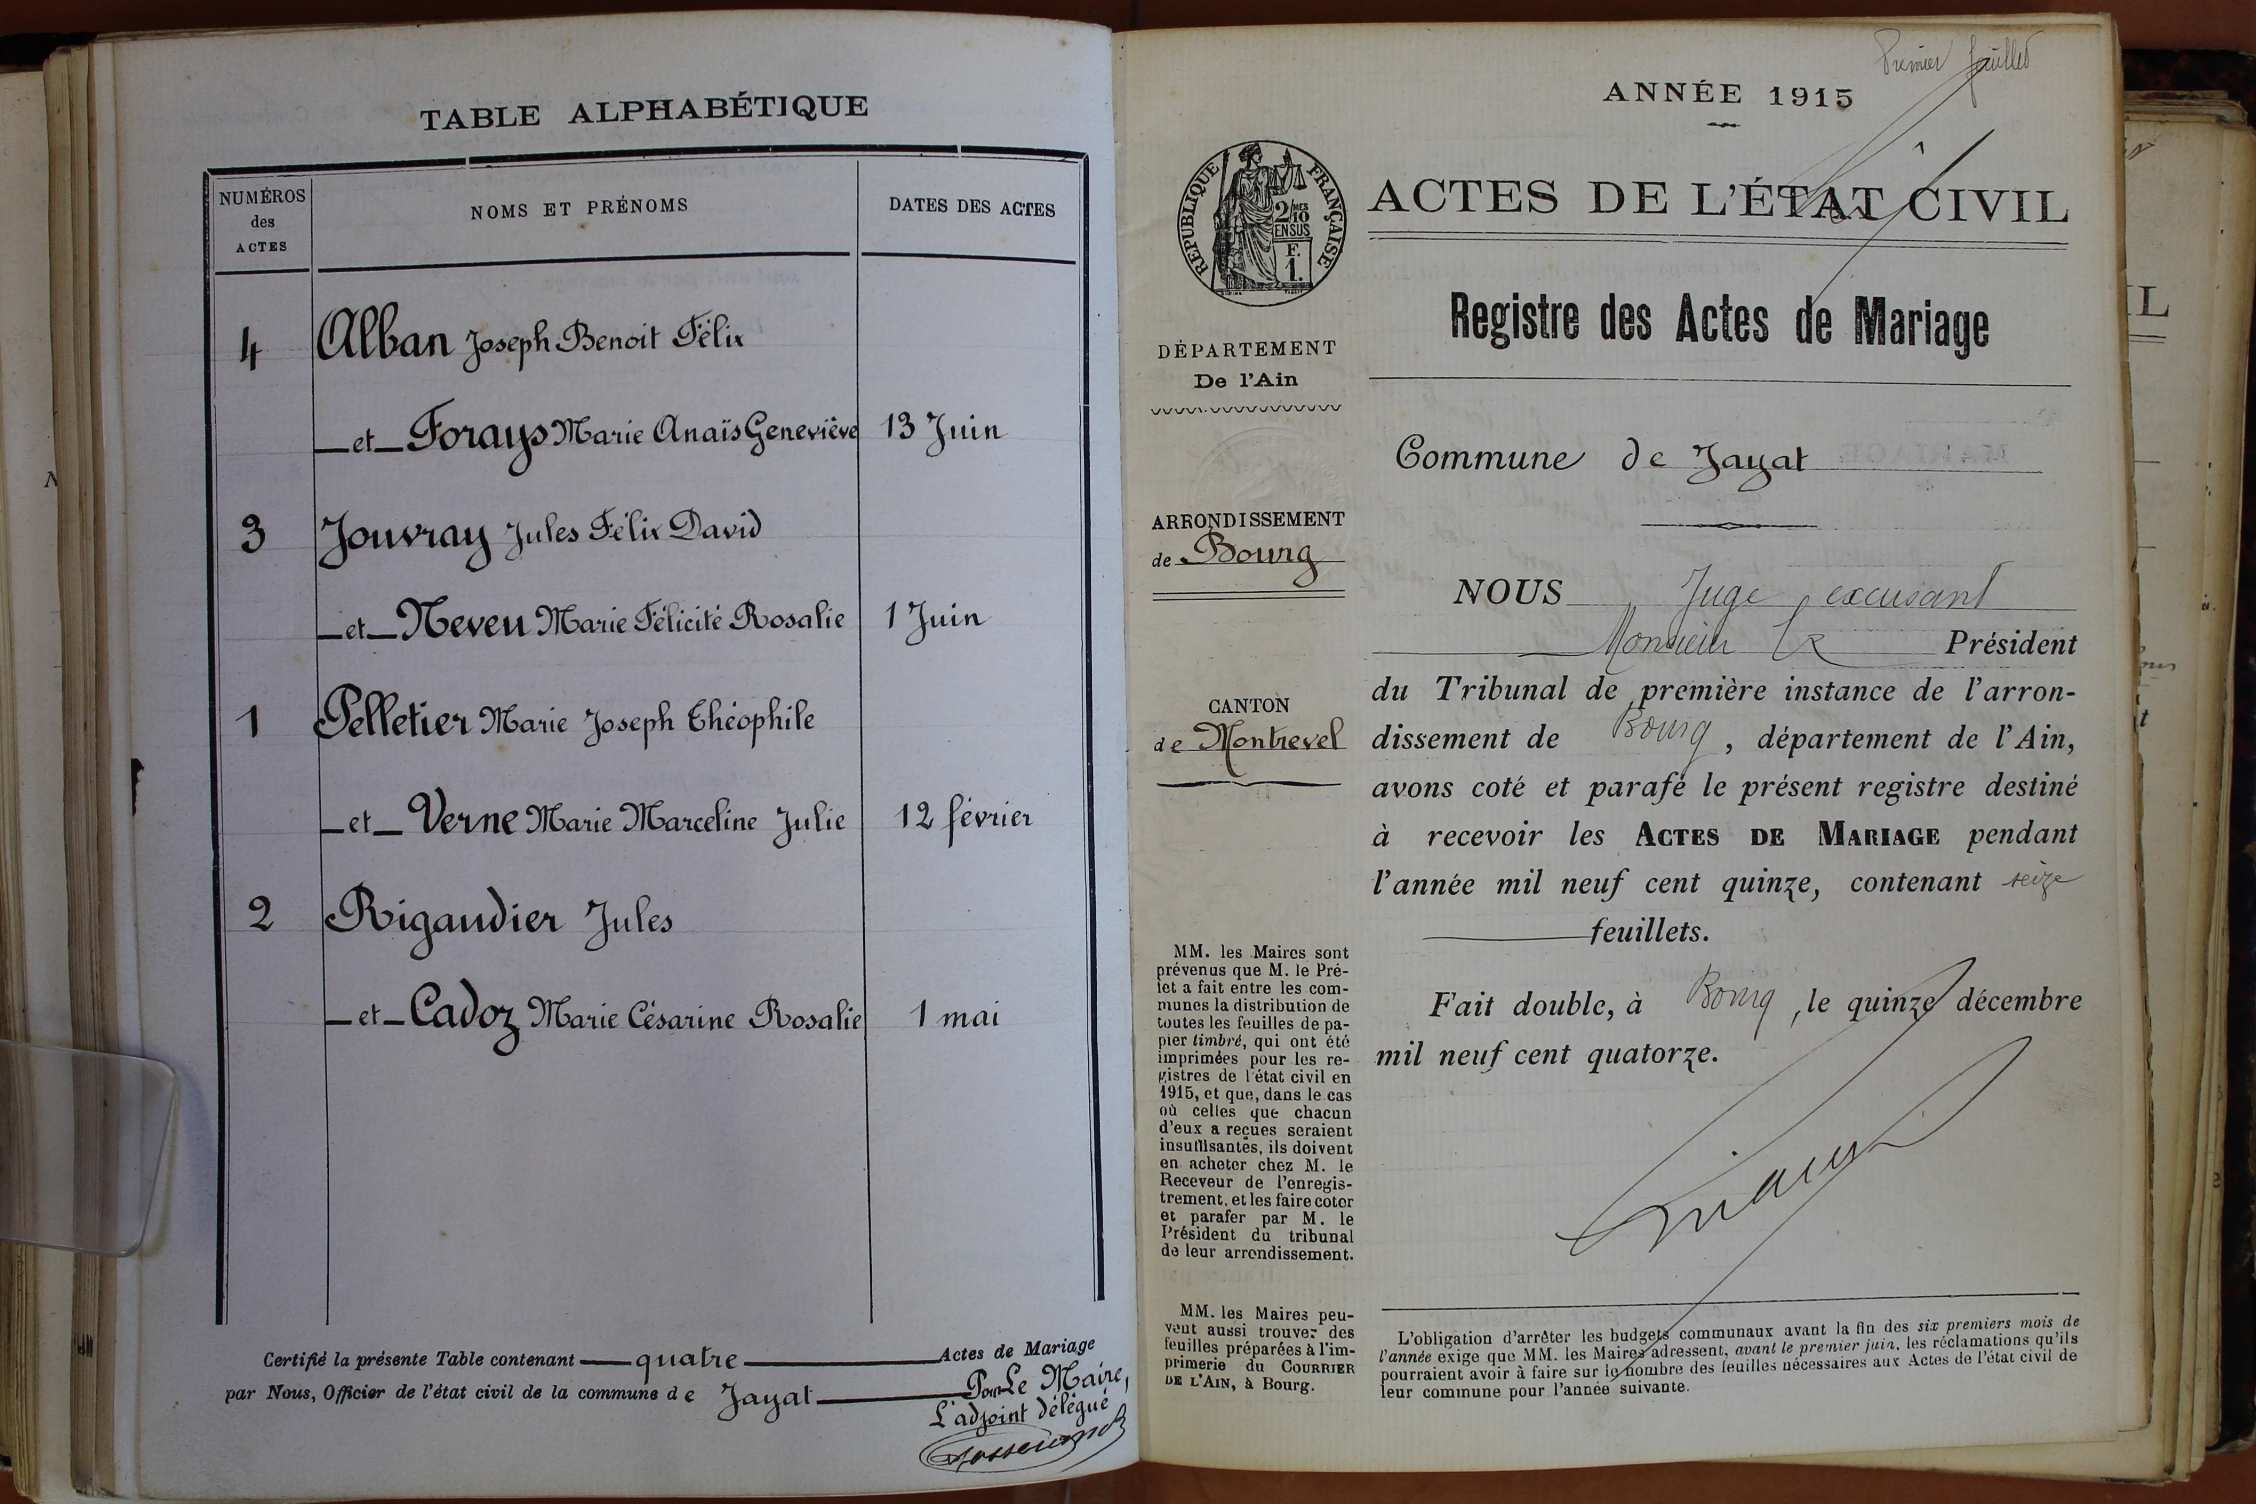 TABLE ALPHABÉTIQUE
NUMÉROS
des
ACTES
NOMS ET PRÉNOMS
DATES DES ACTES
4 Alban Joseph Benoit Félix
et Forays Marie Anaïs Geneviève 13 Juin
3 Jouvray Jules Félix David
et Neveu Marie Félicité Rosalie 1 Juin
1 Pelletier Marie Joseph Théophile
et Verne Marie Marceline Julie 12 février
2 Rigaudier Jules
et Cadoz Marie Césarine Rosalie 1 mai
Certifié la présente Table contenant quatre Actes de Mariage
par Nous, Officier de l'état civil de la commune de Jayat
Pour Le Maire,
L'adjoint délégué
Premier feuillet
ANNÉE 1915
RÉPUBLIQUE FRANÇAISE
2/10 MES
EN SUS
F.
1.
ACTES DE L'ÉTAT CIVIL
Registre des Actes de Mariage
DÉPARTEMENT
De l'Ain
Commune de Jayat
ARRONDISSEMENT
de Bourg
CANTON
de Montrevel
NOUS Juge excusant
Monsieur le Président
du Tribunal de première instance de l'arron-
dissement de Bourg, département de l'Ain,
avons coté et parafé le présent registre destiné
à recevoir les ACTES DE MARIAGE pendant
l'année mil neuf cent quinze, contenant seize
feuillets.
Fait double, à Bourg, le quinze décembre
mil neuf cent quatorze.
MM. les Maires sont
prévenus que M. le Pré-
fet a fait entre les com-
munes la distribution de
toutes les feuilles de pa-
pier timbré, qui ont été
imprimées pour les re-
gistres de l'état civil en
1915, et que, dans le cas
où celles que chacun
d'eux a reçues seraient
insuffisantes, ils doivent
en acheter chez M. le
Receveur de l'enregis-
trement, et les faire coter
et parafer par M. le
Président du tribunal
de leur arrondissement.
MM. les Maires peu-
vent aussi trouver des
feuilles préparées à l'im-
primerie du COURRIER
DE L'AIN, à Bourg.
L'obligation d'arrêter les budgets communaux avant la fin des six premiers mois de
l'année exige que MM. les Maires adressent, avant le premier juin, les réclamations qu'ils
pourraient avoir à faire sur le nombre des feuilles nécessaires aux Actes de l'état civil de
leur commune pour l'année suivante.